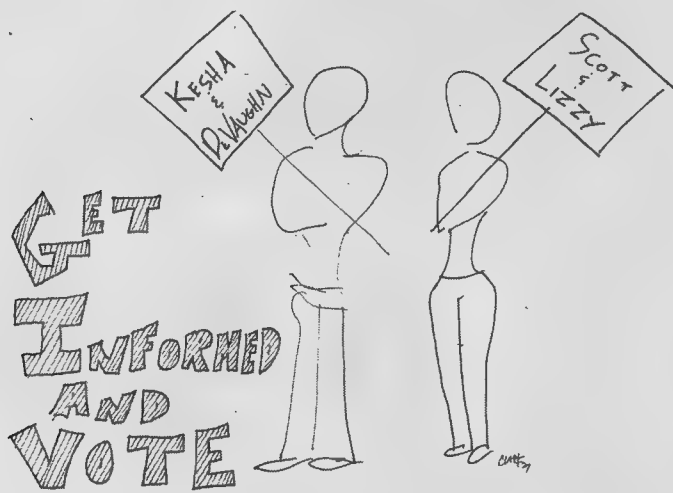 KESHA
&
DEVAUGHN
SCOTT
&
LIZZY
GET
INFORMED
AND
VOTE